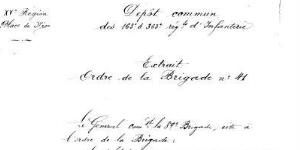 XVe Région
Place de Nice
Dépôt commun
des 163e & 363e régts d'Infanterie
Extrait
Ordre de la Brigade no 41
Le Général comdt la 89e Brigade, cite à
l'ordre de la Brigade: